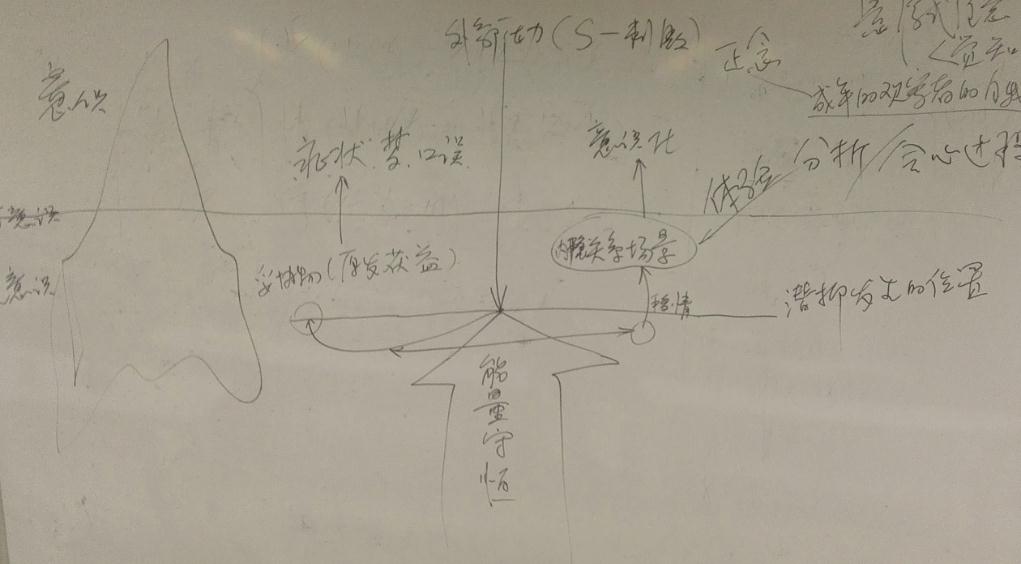 外部压力(S—刺激)
正念
觉知
意识
成年的观察者的自我
症状.梦.口误
意识化
分析/会心过程
体验
前意识
内隐关系场景
妥协物(原发获益)
意识
移情
潜抑发生的位置
能量守恒